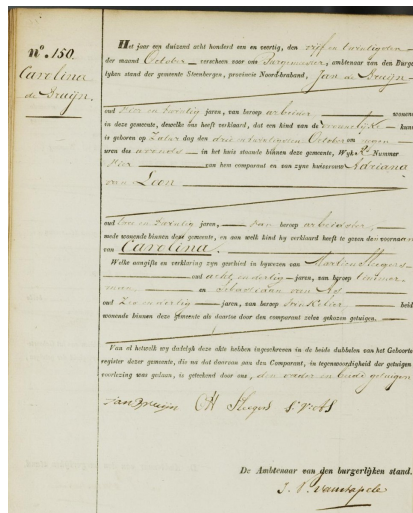 n.º 150.
Carolina
de Bruijn.
Het jaar een duizend acht honderd een en veertig, den vijf en twintigsten
der maand October verscheen voor ons Burgemeester, ambtenaar van den Burger-
lijken stand der gemeente Steenbergen, provincie Noord-braband, Jan de Bruijn
oud Vier en twintig jaren, van beroep arbeider wonende
in deze gemeente, dewelke ons heeft verklaard, dat een kind van de vrouwelijke kunne
is geboren op Zaturdag den drie en twintigsten October om negen
uren des avonds in het huis staande binnen deze gemeente, Wijk Nummer
Vier van hem comparant en van zyne huisvrouw Adriana
van Loon
oud twee en twintig jaren, van beroep arbeidster,
mede wonende binnen deze gemeente, en aan welk kind hy verklaard heeft te geven den voornaam
van Carolina,
Welke aangifte en verklaring zyn geschied in bywezen van Martinus Slegers
oud acht en dertig jaren, van beroep timmer
man en Sebastiaan van
oud Zes en dertig jaren, van beroep beide
wonende binnen deze gemeente als daartoe door den comparant zelve gekozen getuigen.
Van al hetwelk wy dadelijk deze akte hebben ingeschreven in de beide dubbelen van het Geboorte-
register dezer gemeente, die na dat daarvan aan den Comparant, in tegenwoordigheid der getuigen
voorlezing was gedaan, is geteekend door ons, den vader en beide getuigen
Jan Bruijn Slegers
De Ambtenaar van den burgerlijken stand.